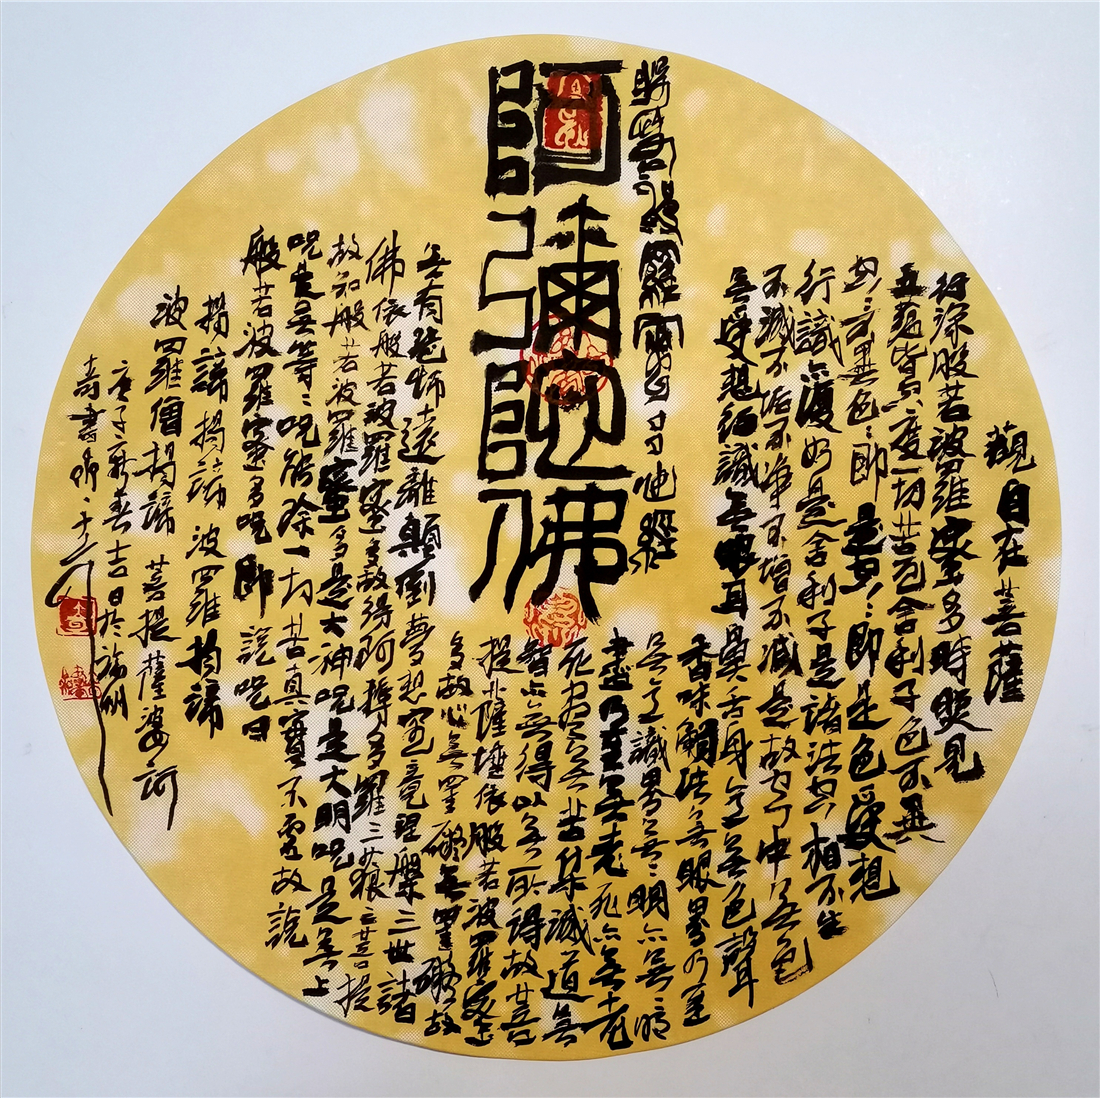 阿彌陀佛
般若波羅蜜多心經
觀自在菩薩
行深般若波羅蜜多時照見
五蘊皆空度一切苦厄舍利子色不異
空〻不異色〻即是空〻即是色受想
行識亦復如是舍利子是諸法空相不生
不滅不垢不淨不增不減是故空中無色
無受想行識無眼耳鼻舌身意無色聲
香味觸法無眼界乃至
無意識界無〻明亦無〻明
盡乃至無老死亦無老
死盡無苦集滅道無
智亦無得以無所得故菩
提薩埵依般若波羅蜜
多故心無罣礙無罣礙故
無有恐怖遠離顛倒夢想究竟涅槃三世諸
佛依般若波羅蜜多故得阿耨多羅三藐三菩提
故知般若波羅蜜多是大神呪是大明呪是無上
呪是無等〻呪能除一切苦真實不虛故說
般若波羅蜜多呪即說呪曰
揭諦揭諦 波羅揭諦
波羅僧揭諦 菩提薩婆訶
庚子新春吉日於福州
壽書